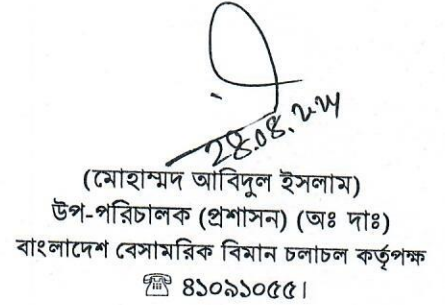 (মোহাম্মদ আবিদুল ইসলাম)
উপ-পরিচালক (প্রশাসন) (অঃ দাঃ)
বাংলাদেশ বেসামরিক বিমান চলাচল কর্তৃপক্ষ
☎ ৪১০৯১০৫৫।